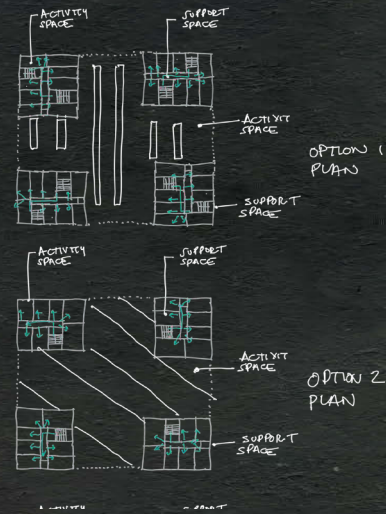 ACTIVITY
SPACE
SUPPORT
SPACE
ACTIVIT
SPACE
OPTION 1
PLAN
SUPPORT
SPACE
ACTIVITY
SPACE
SUPPORT
SPACE
ACTIVIT
SPACE
OPTION 2
PLAN
SUPPORT
SPACE